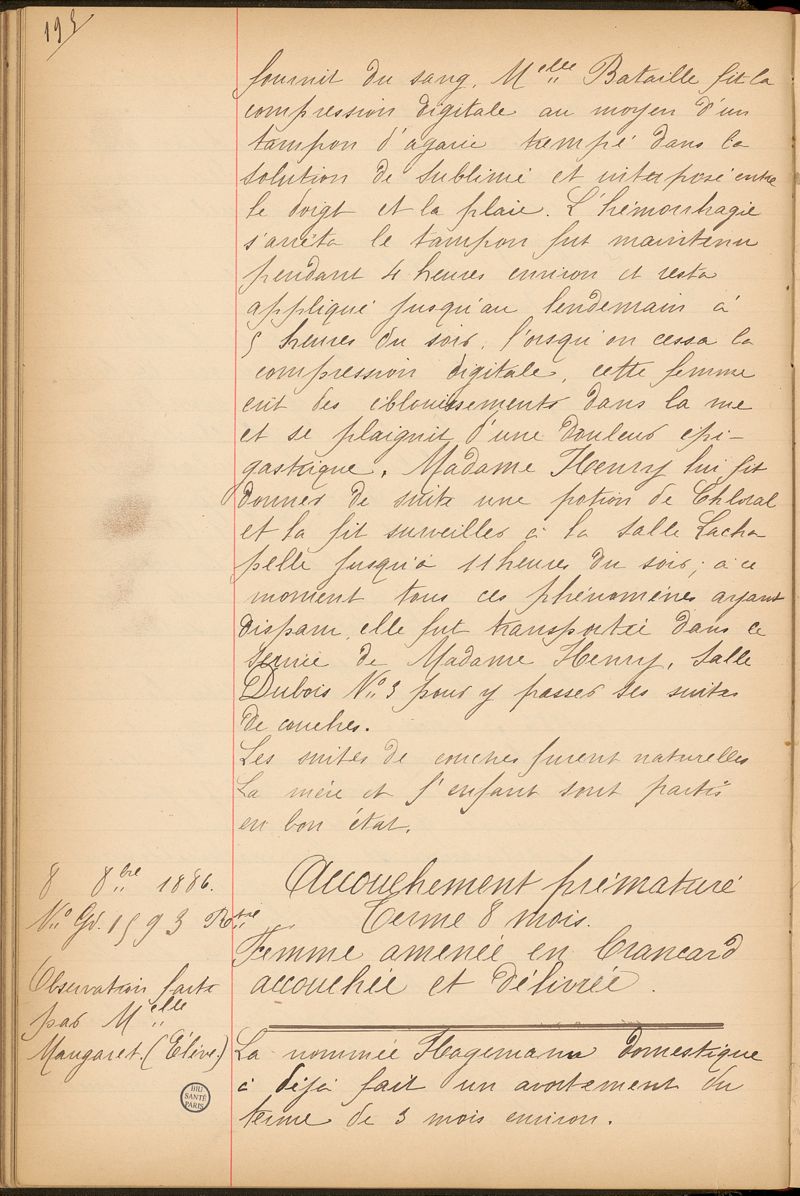 195
fournit du sang. Melle Bataille fit la
compression digitale au moyen d'un
tampon d'agaric trempé dans la
solution de sublimé et interposé entre
le doigt et la plaie. L'hémorrhagie
s'arrêta le tampon fut maintenu
pendant 4 heures environ et resta
appliqué jusqu'au lendemain à
5 heures du soir. lorsqu'on cessa la
compression digitale, cette femme
eut des éblouissements dans la vue
et se plaignit d'une douleur épi-
gastrique. Madame Henry lui fit
donner de suite une potion de Chloral
et la fit surveiller à la salle Lacha
pelle jusqu'à 11 heures du soir; à ce
moment tous ces phénomènes ayant
disparu, elle fut transportée dans le
service de Madame Henry, Salle
Dubois No 3 pour y passer ses suites
de couches.
Les suites de couches furent naturelles
La mère et l'enfant sont partis
en bon état.
8 8bre 1886.
No Gd. 1593 Rtre
Observation faite
par Melle
Mangaret. (Elève.)
Accouchement prématuré
Terme 8 mois.
Femme amenée en brancard
accouchée et délivrée.
La nommée Hagemann domestique
a déjà fait un avortement du
terme de 3 mois environ.
BIU
SANTÉ
PARIS